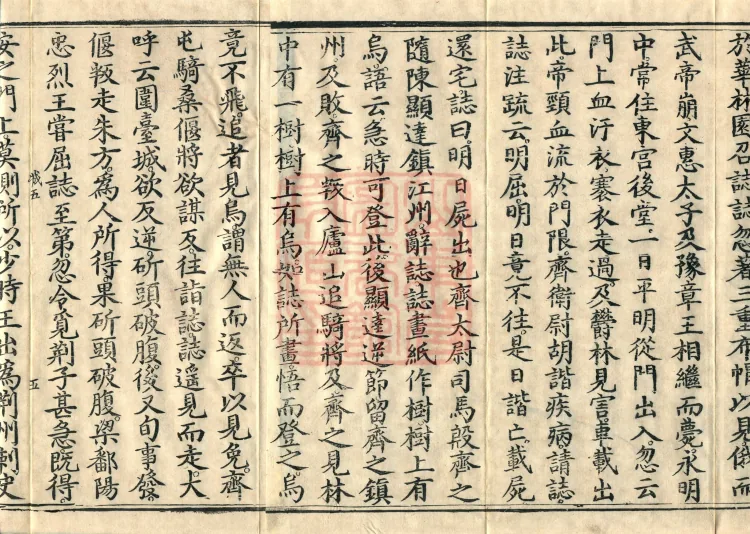 於華林園召誌誌忽著三重布帽以見俄而
武帝崩文惠太子及豫章王相繼而薨永明
中常住東宮後堂一日平明從門出入忽云
門上血汙衣褰衣走過及欝林見害車載出
此帝頸血流於門限齊衛尉胡諧疾病請誌
誌注疏云明屈明日竟不往是日諧亡載屍
還宅誌曰明日屍出也齊太尉司馬殷齊之
隨陳顯達鎮江州辭誌誌畫紙作樹樹上有
烏語云急時可登此後顯達逆節留齊之鎮
州及敗齊之叛入廬山追騎將及齊之見林
中有一樹樹上有烏如誌所畫悟而登之烏
竟不飛追者見烏謂無人而返卒以見免齊
屯騎桑偃將欲謀反往詣誌誌遥見而走大
呼云圍臺城欲反逆斫頭破腹後又旬事發
偃叛走朱方為人所得果斫頭破腹梁鄱陽
忠烈王嘗屈誌至第忽令覓荆子甚急既得
五
安之門上莫測所以少時王出為荆州刺史